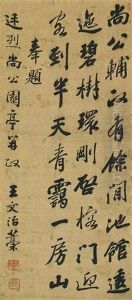 尚公輔以有餘閒池館逶
迤碧樹環剛啓榕門迎
客到半天青靄一房山
奉題
述烈尚公園亭並政
王文治藁